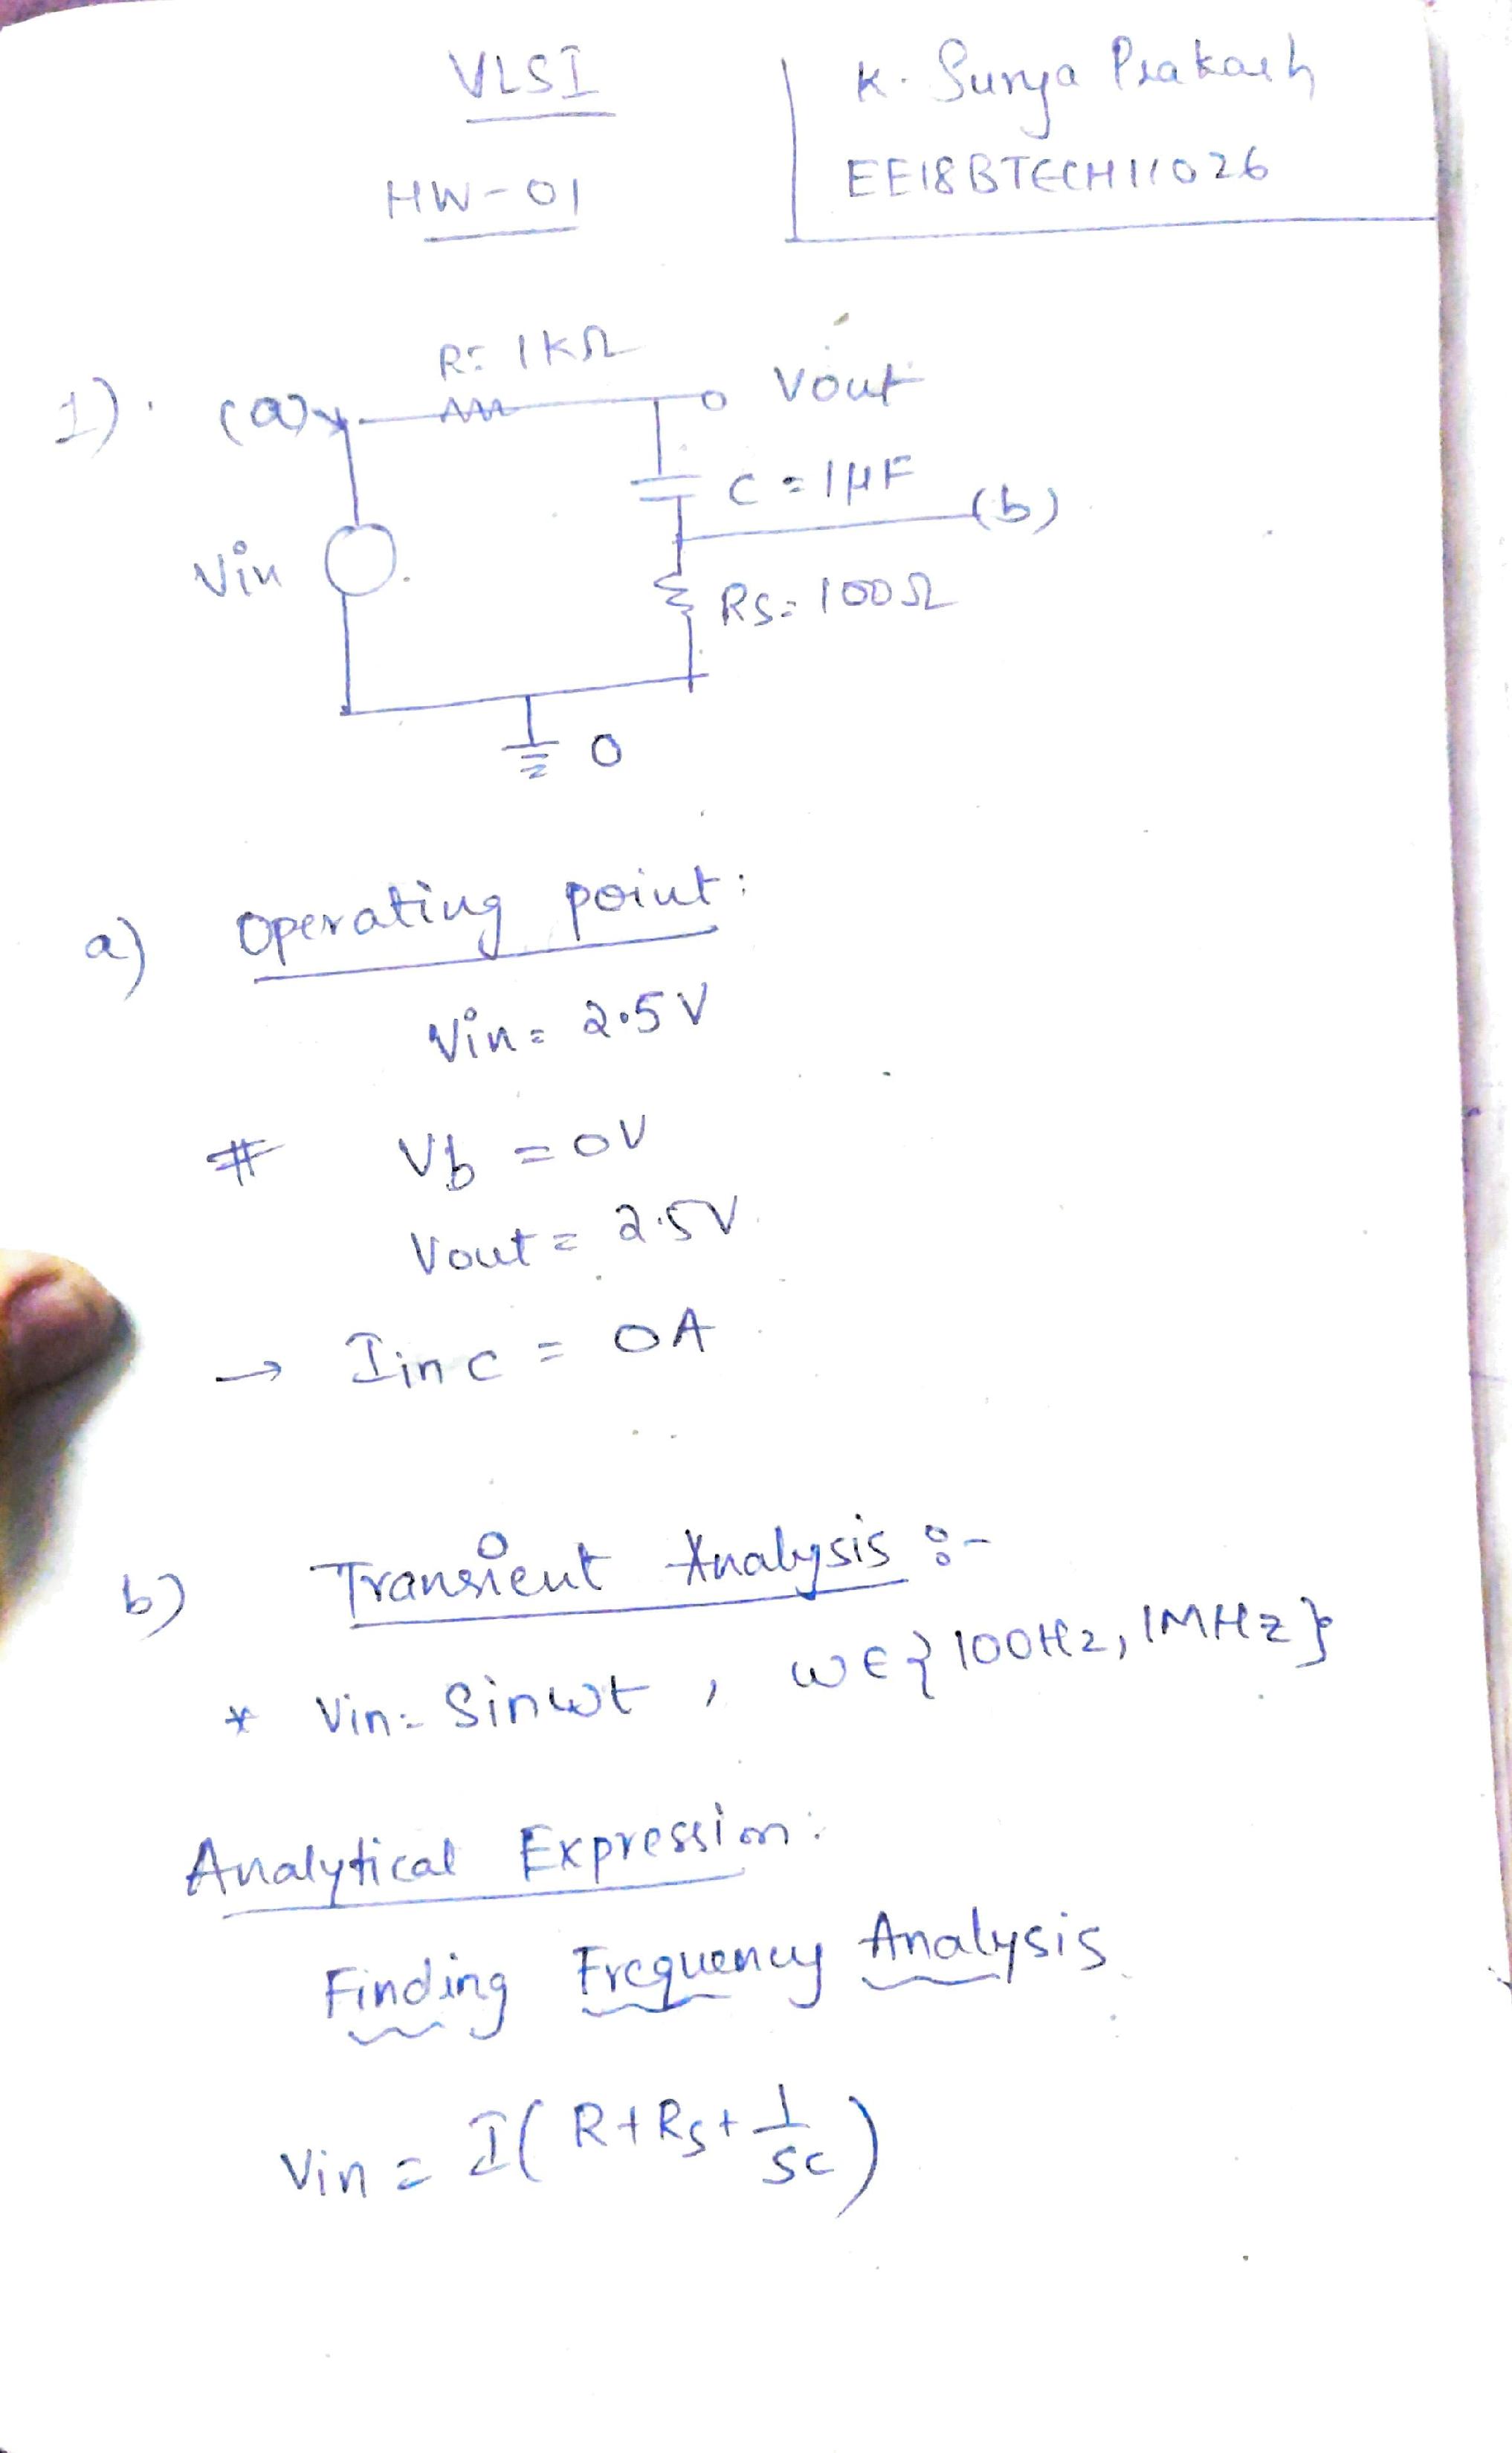 VLSI
HW-01
K. Surya Prakash
EE18BTECH11026
1). (a)
R= 1KΩ
Vout
C = 1μF
(b)
Vin
RS= 100Ω
0
a) Operating point:
Vin = 2.5V
# Vb = 0V
Vout = 2.5V
→ I in c = 0A
b) Transient Analysis :-
* Vin = Sinωt , ω∈{100Hz, 1MHz}
Analytical Expression:
Finding Frequency Analysis
Vin = I( R+Rs+ 1/SC )